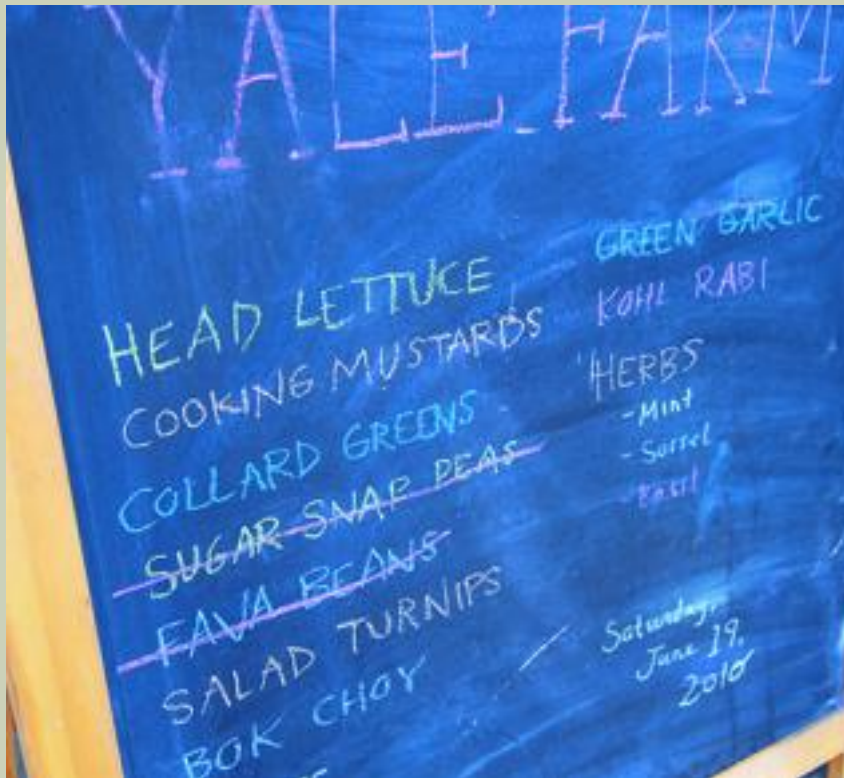 YALE FARM
HEAD LETTUCE
COOKING MUSTARDS
COLLARD GREENS
SUGAR SNAP PEAS
FAVA BEANS
SALAD TURNIPS
BOK CHOY
GREEN GARLIC
KOHL RABI
HERBS
- Mint
- Sorrel
- Basil
Saturday,
June 19,
2010